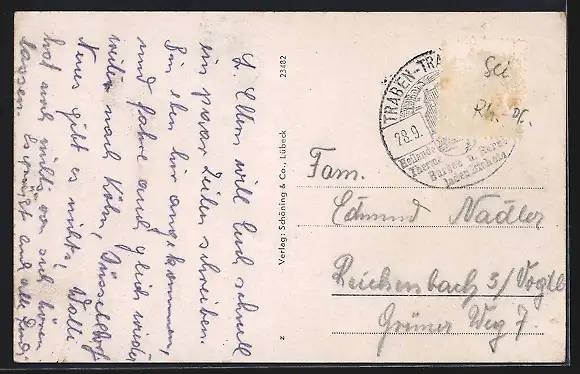 L. Eltern will Euch schnell
ein paar Zeilen schreiben.
Bin eben hier angekommen,
und fahre auch gleich wieder
weiter nach Köln, Düsseldorf
Neues gibt es nichts. Walli
hat noch nichts von sich hören
lassen. Es grüßt Euch alle Euer
Verlag: Schöning & Co., Lübeck
23482
z
TRABEN-TRA
28.9.
Heilende
Therme
Burgen u. Reben
laden Dich ein
Sci
Rh. Pf.
Fam.
Edmund Nadler
Reichenbach 3/Vogtl
Grüner Weg 7.